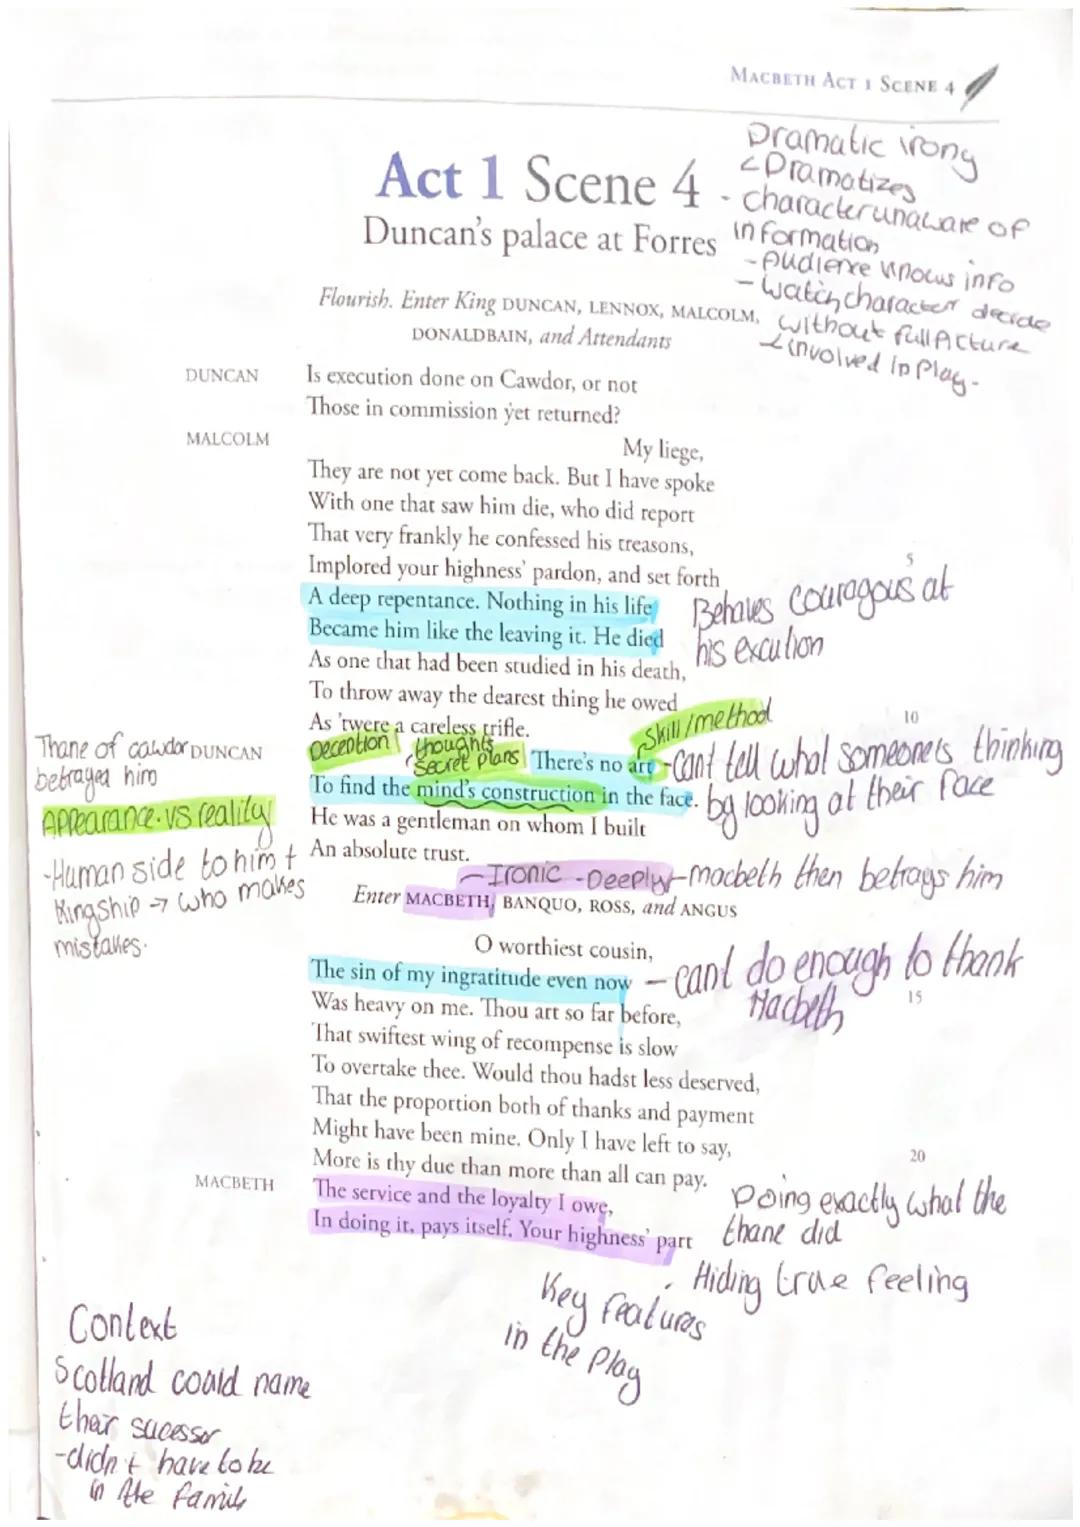 MACBETH ACT 1 SCENE 4
Dramatic irony
<Dramatizes
- character unaware of
information
- Audience knows info
- watch character decide
without full Picture
involved in play.
Act 1 Scene 4
Duncan's palace at Forres
Flourish. Enter King DUNCAN, LENNOX, MALCOLM,
DONALDBAIN, and Attendants
DUNCAN Is execution done on Cawdor, or not
Those in commission yet returned?
MALCOLM My liege,
They are not yet come back. But I have spoke
With one that saw him die, who did report
That very frankly he confessed his treasons,
5
Implored your highness' pardon, and set forth
A deep repentance. Nothing in his life
Became him like the leaving it. He died
Behaves couragous at
his excution
As one that had been studied in his death,
To throw away the dearest thing he owed
10
As 'twere a careless trifle.
Skill/method
Deception
thoughts
secret plans
Thane of cawdor
betrayed him
Appearance vs reality
-Human side to him +
Kingship → who makes
mistakes.
DUNCAN There's no art
-cant tell what someone is thinking
by looking at their face
To find the mind's construction in the face.
He was a gentleman on whom I built
An absolute trust.
-Ironic -Deeply-macbeth then betrays him
Enter MACBETH, BANQUO, ROSS, and ANGUS
O worthiest cousin,
The sin of my ingratitude even now
- cant do enough to thank
Macbeth
15
Was heavy on me. Thou art so far before,
That swiftest wing of recompense is slow
To overtake thee. Would thou hadst less deserved,
That the proportion both of thanks and payment
Might have been mine. Only I have left to say,
20
More is thy due than more than all can pay.
MACBETH The service and the loyalty I owe,
In doing it, pays itself. Your highness' part
Doing exactly what the
thane did
Hiding true feeling
Key features
in the play
Context
Scotland could name
their sucessor
-didn't have to be
in the family